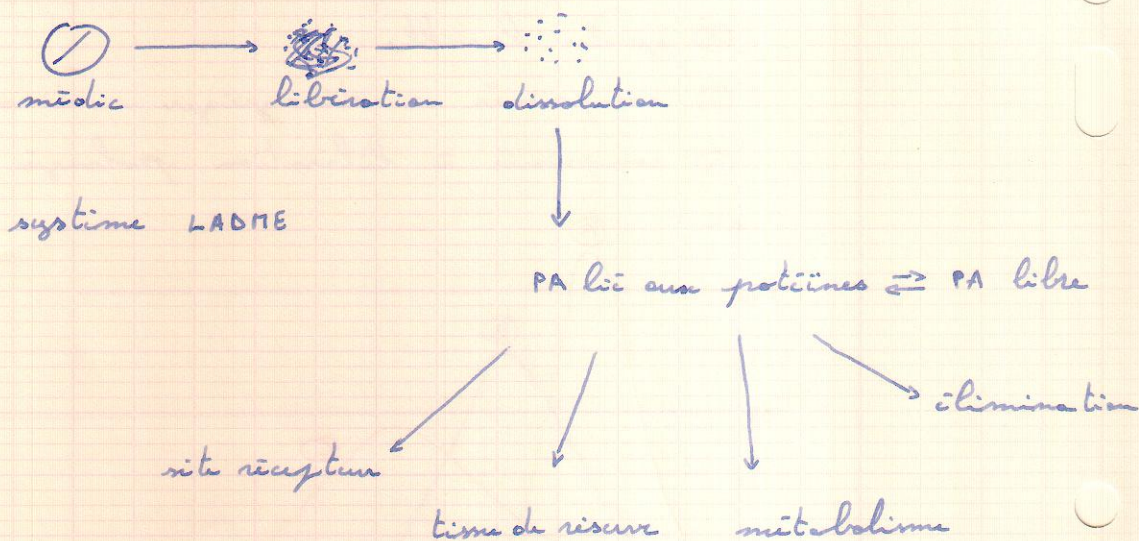 médic libération dissolution
système LADME
PA lié aux potéïnes ⇄ PA libre
élimination
site récepteur
tissu de réserve métabolisme